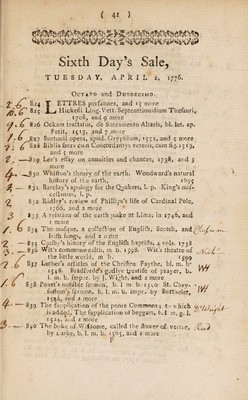 ( 41 )
Sixth Day's Sale,
TUESDAY, APRIL 2, 1776.
OCTAVO and DUODECIMO.
2.6 824 LETTRES persannes, and 15 more
825 Hickesii Ling. Vett. Septentrionalium Thesauri,
1708, and 9 more
9.6 826 Ockam tractatus, de Sacramento Altaris, bl. let. ap.
Petit, 1513, and 7 more
827 Suetonii opera, apud. Gryphium, 1551, and 5 more
828 Biblia sacra cum Concordantiis veteris, cum fig. 1519,
and 5 more
829 Lee's essay on annuities and chances, 1738, and 5
more
830 Whiston's theory of the earth. Woodward's natural
history of the earth, 1695
831 Barclay's apology for the Quakers, l. p. King's mis-
cellanies, l. p.
832 Ridley's review of Phillips's life of Cardinal Pole,
1766, and 2 more
833 A relation of the earthquake at Lima, in 1746, and
2 more
834 The musque, a collection of English, Scotch, and
Irish songs, and 2 more
835 Crosby's history of the English baptists, 4 vols. 1738
836 Wit's commonwealth, m. b. 1598. Wit's theatre of
the little world, m. b. 1599
837 Luther's articles of the Christen Faythe, bl. m. b.
1548. Bradforde's godlye treatise of prayer, b.
l. m. b. impr. by J. Wight, and 2 more WH
838 Ponet's notable sermon, b. l. m. b. 1550 St. Chry-
sostom's sermon, b. l. m. b. impr. by Berthelet,
1542, and 2 more WH
839 The supplication of the poore Commons; to which
is added, The supplication of beggars, b. l. m. g. l.
1524, and 2 more
840 The boke of Wisdome, called the flower of vertue,
by Larke, b. l. m. b. 1565, and 1 more